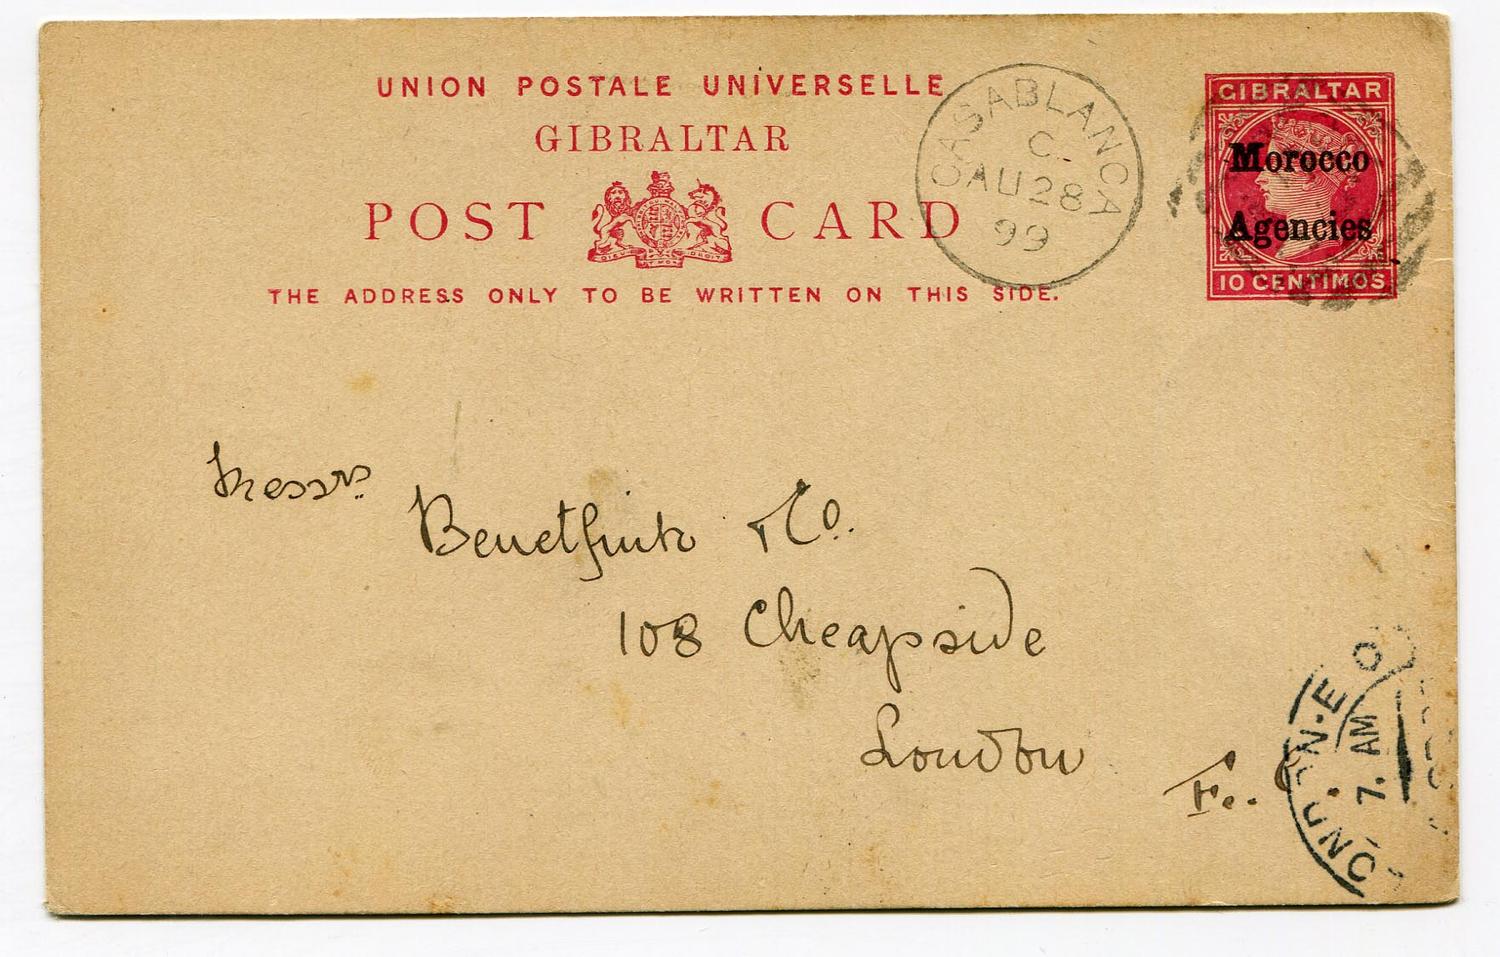 UNION POSTALE UNIVERSELLE
GIBRALTAR
POST CARD
THE ADDRESS ONLY TO BE WRITTEN ON THIS SIDE.
CASABLANCA
C
AU 28
99
GIBRALTAR
Morocco
Agencies
10 CENTIMOS
Messrs.
Benetfink & Co.
108 Cheapside
London
E.C.
7. AM